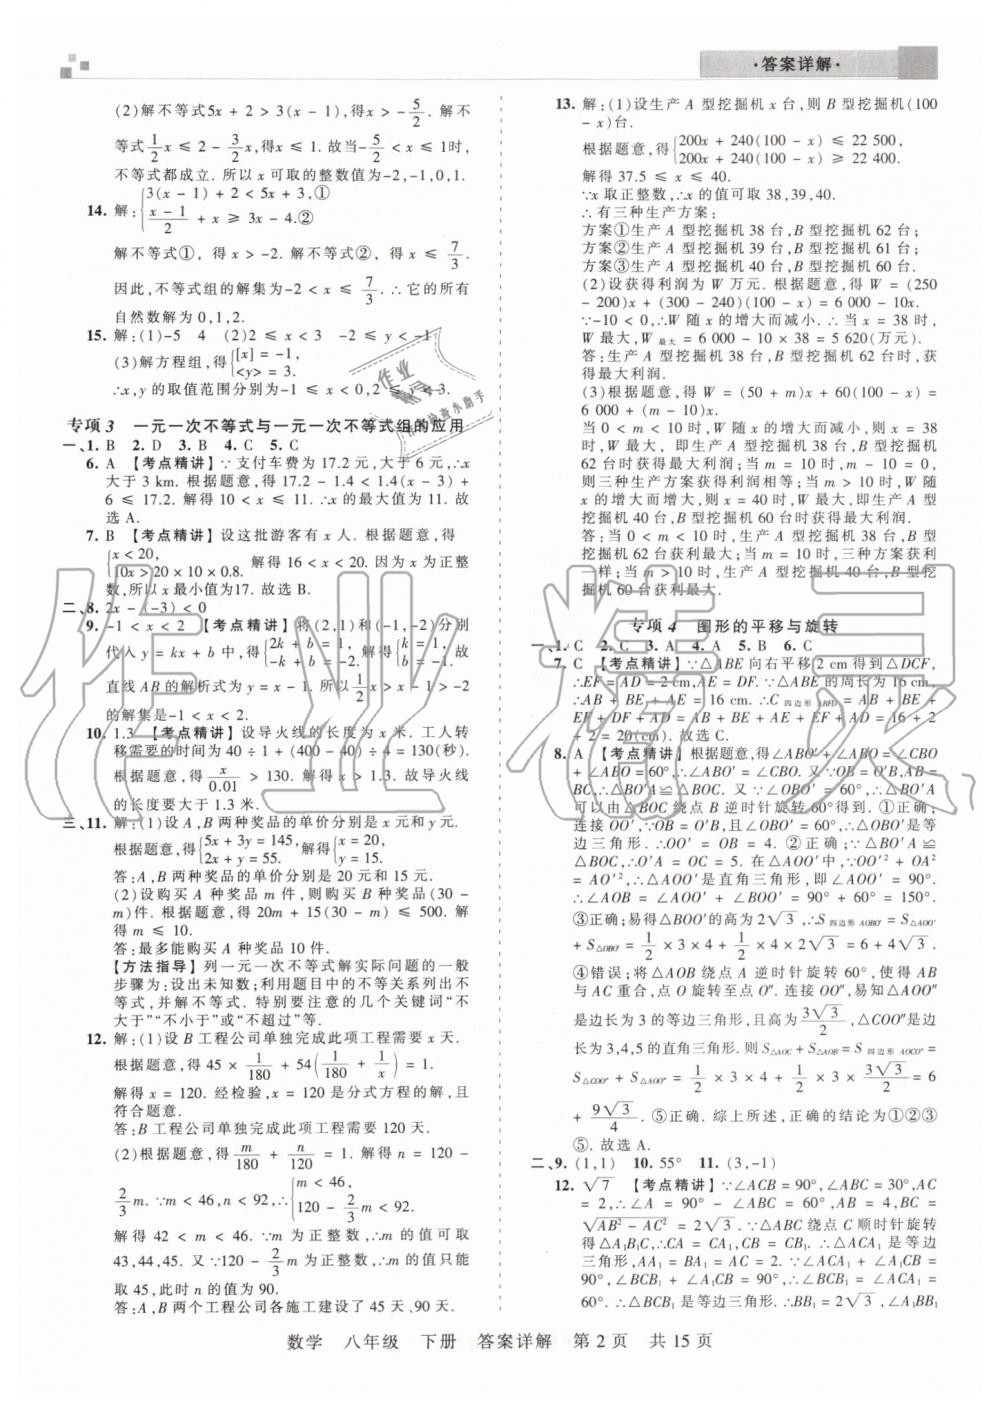 ·答案详解·
(2)解不等式5x + 2 > 3(x - 1),得x > -5/2. 解不
等式1/2x ≤ 2 - 3/2x,得x ≤ 1. 故当-5/2 < x ≤ 1时,
不等式都成立. 所以 x 可取的整数值为-2,-1,0,1.
14. 解:{3(x - 1) + 2 < 5x + 3,①
(x - 1)/2 + x ≥ 3x - 4.②
解不等式①, 得 x > -2. 解不等式②, 得 x ≤ 7/3.
因此,不等式组的解集为-2 < x ≤ 7/3. ∴它的所有
自然数解为 0,1,2.
15. 解:(1)-5 4 (2)2 ≤ x < 3 -2 ≤ y < -1
(3)解方程组,得{[x] = -1,
<y> = 3.
∴x,y 的取值范围分别为-1 ≤ x < 0,2 ≤ y < 3.
专项 3 一元一次不等式与一元一次不等式组的应用
一、1. B 2. D 3. B 4. C 5. C
6. A 【考点精讲】∵支付车费为 17.2 元,大于 6 元,∴x
大于 3 km. 根据题意,得 17.2 - 1.4 < 1.4(x - 3) +
6 ≤ 17.2. 解得 10 < x ≤ 11. ∴x 的最大值为 11. 故
选 A.
7. B 【考点精讲】设这批游客有 x 人. 根据题意,得
{x < 20,
10x > 20 × 10 × 0.8. 解得 16 < x < 20. 因为 x 为正整
数,所以 x 最小值为17. 故选 B.
二、8. 2x - (-3) < 0
9. -1 < x < 2 【考点精讲】将(2,1)和(-1,-2)分别
代入 y = kx + b 中,得{2k + b = 1,
-k + b = -2. 解得{k = 1,
b = -1. 故
直线 AB 的解析式为 y = x - 1. 所以 1/2x > x - 1 > -2
的解集是-1 < x < 2.
10. 1.3 【考点精讲】设导火线的长度为 x 米. 工人转
移需要的时间为 40 ÷ 1 + (400 - 40) ÷ 4 = 130(秒).
根据题意,得 x/0.01 > 130. 解得 x > 1.3. 故导火线
的长度要大于 1.3 米.
三、11. 解:(1)设 A,B 两种奖品的单价分别是 x 元和 y 元.
根据题意,得{5x + 3y = 145,
2x + y = 55. 解得{x = 20,
y = 15.
答:A,B 两种奖品的单价分别是 20 元和 15 元.
(2)设购买 A 种奖品 m 件,则购买 B 种奖品(30 -
m)件. 根据题意,得 20m + 15(30 - m) ≤ 500. 解
得 m ≤ 10.
答:最多能购买 A 种奖品 10 件.
【方法指导】列一元一次不等式解实际问题的一般
步骤为:设出未知数;利用题目中的不等关系列出不
等式,并解不等式. 特别要注意的几个关键词“不
大于”“不小于”或“不超过”等.
12. 解:(1)设 B 工程公司单独完成此项工程需要 x 天.
根据题意,得 45 × 1/180 + 54(1/180 + 1/x) = 1. 解得
x = 120. 经检验,x = 120 是分式方程的解,且
符合题意.
答:B 工程公司单独完成此项工程需要 120 天.
(2)根据题意,得 m/180 + n/120 = 1. 解得 n = 120 -
2/3m. ∵m < 46,n < 92,∴{m < 46,
120 - 2/3m < 92.
解得 42 < m < 46. ∵m 为正整数,∴m 的值可取
43,44,45. 又∵120 - 2/3m 为正整数,∴m 的值只能
取 45,此时 n 的值为 90.
答:A,B 两个工程公司各施工建设了 45 天、90 天.
13. 解:(1)设生产 A 型挖掘机 x 台,则 B 型挖掘机(100
- x)台.
根据题意,得{200x + 240(100 - x) ≤ 22 500,
200x + 240(100 - x) ≥ 22 400.
解得 37.5 ≤ x ≤ 40.
∵x 取正整数,∴x 的值可取 38,39,40.
∴有三种生产方案:
方案①生产 A 型挖掘机 38 台,B 型挖掘机 62 台;
方案②生产 A 型挖掘机 39 台,B 型挖掘机 61 台;
方案③生产 A 型挖掘机 40 台,B 型挖掘机 60 台.
(2)设获得利润为 W 万元. 根据题意,得 W = (250
- 200)x + (300 - 240)(100 - x) = 6 000 - 10x.
∵-10 < 0,∴W 随 x 的增大而减小. ∴当 x = 38 时,
W 最大,W最大 = 6 000 - 10 × 38 = 5 620(万元).
答:生产 A 型挖掘机 38 台,B 型挖掘机 62 台时,获
得最大利润.
(3)根据题意,得 W = (50 + m)x + 60(100 - x) =
6 000 + (m - 10)x.
当 0 < m < 10 时,W 随 x 的增大而减小,则 x = 38
时,W 最大, 即生产 A 型挖掘机 38 台,B 型挖掘机 62
台时获得最大利润;当 m = 10 时,m - 10 = 0,
则三种生产方案获得利润相等;当 m > 10 时,W 随
x 的增大而增大,则 x = 40 时,W 最大,即生产 A 型
挖掘机 40 台,B 型挖掘机 60 台时获得最大利润.
答:当 0 < m < 10 时,生产 A 型挖掘机 38 台,B 型
挖掘机 62 台获利最大;当 m = 10 时,三种方案获利
一样;当 m > 10 时,生产 A 型挖掘机 40 台,B 型挖
掘机 60 台获利最大.
专项 4 图形的平移与旋转
一、1. C 2. C 3. A 4. A 5. B 6. C
7. C 【考点精讲】∵△ABE 向右平移 2 cm 得到△DCF,
∴EF = AD = 2 cm,AE = DF. ∵△ABE 的周长为 16 cm,
∴AB + BE + AE = 16 cm. ∴C四边形ABFD = AB + BE +
EF + DF + AD = AB + BE + AE + EF + AD = 16 + 2
+ 2 = 20(cm). 故选 C.
8. A 【考点精讲】根据题意,得∠ABO′ + ∠ABO = ∠CBO
+ ∠ABO = 60°,∴∠ABO′ = ∠CBO. 又∵OB = O′B,AB =
BC,∴△ABO′ ≌ △CBO. 又∵∠OBO′ = 60°,∴△ABO′
可以由△BOC 绕点 B 逆时针旋转 60°得到. ①正确;
连接 OO′,∵OB = O′B,且∠OBO′ = 60°,∴△OBO′是等
边三角形. ∴OO′ = OB = 4. ②正确;∵△BO′A ≌
△BOC,∴O′A = OC = 5. 在△AOO′中,∵OO′² + OA²
= AO′²,∴△AOO′是直角三角形,即∠AOO′ = 90°.
∴∠AOB = ∠AOO′ + ∠BOO′ = 90° + 60° = 150°.
③正确;易得△BOO′的高为 2√3,∴S四边形AOBO′ = S△AOO′
+ S△OBO′ = 1/2 × 3 × 4 + 1/2 × 4 × 2√3 = 6 + 4√3.
④错误;将△AOB 绕点 A 逆时针旋转 60°,使得 AB
与 AC 重合,点 O 旋转至点 O″. 连接 OO″,易得△AOO″
是边长为 3 的等边三角形,且高为3√3/2,△COO″是边
长为 3,4,5 的直角三角形. 则 S△AOC + S△AOB = S四边形AOCO″ =
S△COO″ + S△AOO″ = 1/2 × 3 × 4 + 1/2 × 3 × 3√3/2 = 6
+ 9√3/4. ⑤正确. 综上所述,正确的结论为①②③
⑤. 故选 A.
二、9. (1,1) 10. 55° 11. (3,-1)
12. √7 【考点精讲】∵∠ACB = 90°,∠ABC = 30°,AC
= 2,∴∠A = 90° - ∠ABC = 60°,AB = 4,BC =
√AB² - AC² = 2√3. ∵△ABC 绕点 C 顺时针旋转
得△A₁B₁C,∴CA = CA₁. ∴△ACA₁ 是等边三角
形,AA₁ = BA₁ = AC = 2. ∵∠ACA₁ + ∠A₁CB =
90°,∠BCB₁ + ∠A₁CB = 90°,∴∠BCB₁ = ∠ACA₁ =
60°. ∴△BCB₁ 是等边三角形. ∴BB₁ = 2√3,∠A₁BB₁
数学 八年级 下册 答案详解 第 2 页 共 15 页